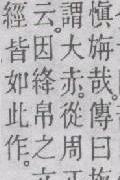 愼旃哉。傳曰
謂大赤。從周正
云。因絳帛之
經皆如此作。